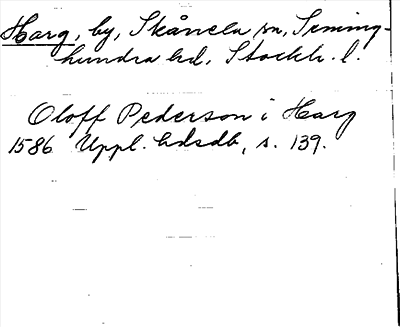 Harg, by, Skånela sn, Seming-
hundra hd, Stockh. l.
Oloff Pederson i Harg
1586 Uppl. hdsdb, s. 139.